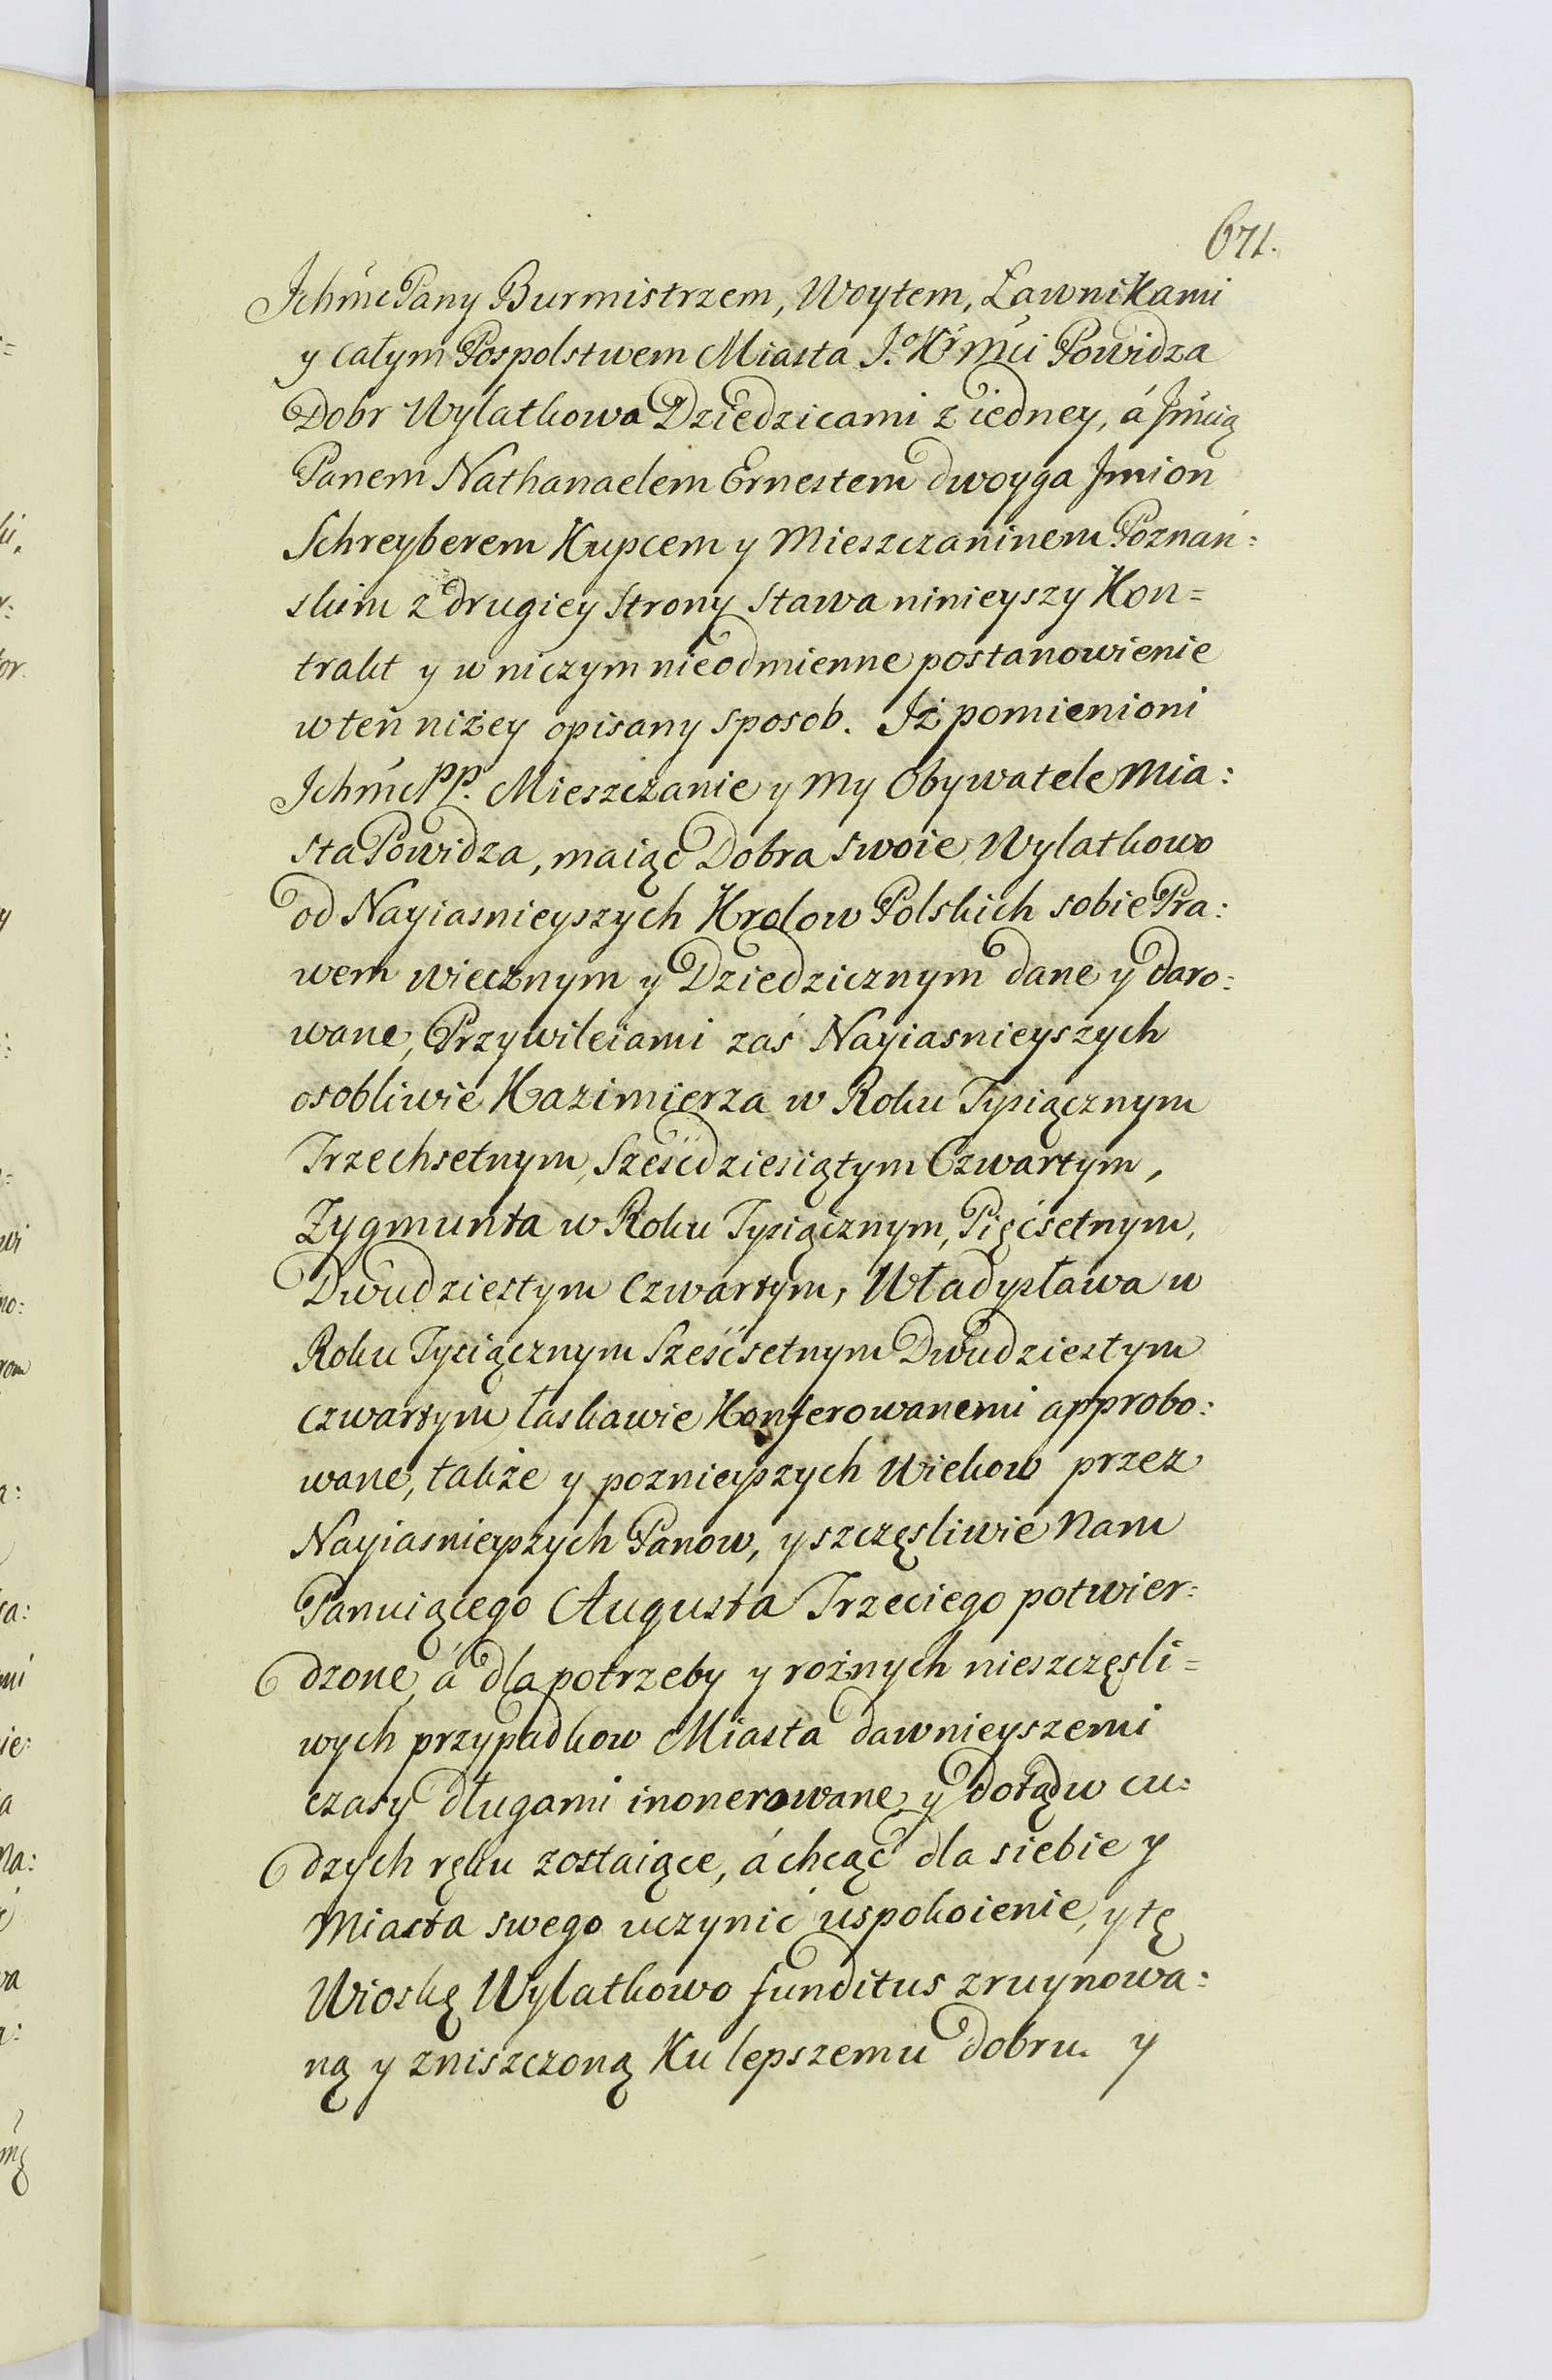 671.
Jchmć Pany Burmistrzem, Woytem, Ławnikami
y całym Pospolstwem Miasta J.º Kr̃ Mci Powidza
Dobr Wylatkowa Dziedzicami z iedney, á Jmcią
Panem Nathanaelem Ernestem dwoyga Jmion
Schreyberem Kupcem y Mieszczaninem Poznań:
skim z drugiey strony stawa ninieyszy Kon=
trakt y w niczym nieodmienne postanowienie
w ten niżey opisany sposob. Jż pomienioni
Jchmć PP. Mieszczanie y My Obywatele Mia:
sta Powidza, maiąc Dobra swoie Wylatkowo
od Nayiasnieyszych Krolow Polskich sobie Pra:
wem wiecznym y Dziedzicznym dane y daro:
wane, Przywileiami zaś Nayiasnieyszych
osobliwie Kazimierza w Roku Tysiącznym
Trzechsetnym, Sześćdziesiątym Czwartym,
Zygmunta w Roku Tysiącznym, Pięćsetnym,
Dwudziestym czwartym, Władysława w
Roku Tysiącznym Sześćsetnym Dwudziestym
czwartym łaskawie Konferowanemi approbo:
wane, także y poznieyszych Wiekow przez
Nayiasnieyszych Panow, y szczęsliwie Nam
Panuiącego Augusta Trzeciego potwier:
dzone, á dla potrzeby y rożnych nieszczęsli=
wych przypadkow Miasta dawnieyszemi
czasy długami inonerowane y dotąd w cu:
dzych ręku zostaiące, á chcąc dla siebie y
Miasta swego uczynić uspokoienie, y tę
Wioskę Wylatkowo funditus zruynowa:
ną y zniszczoną Ku lepszemu dobru y